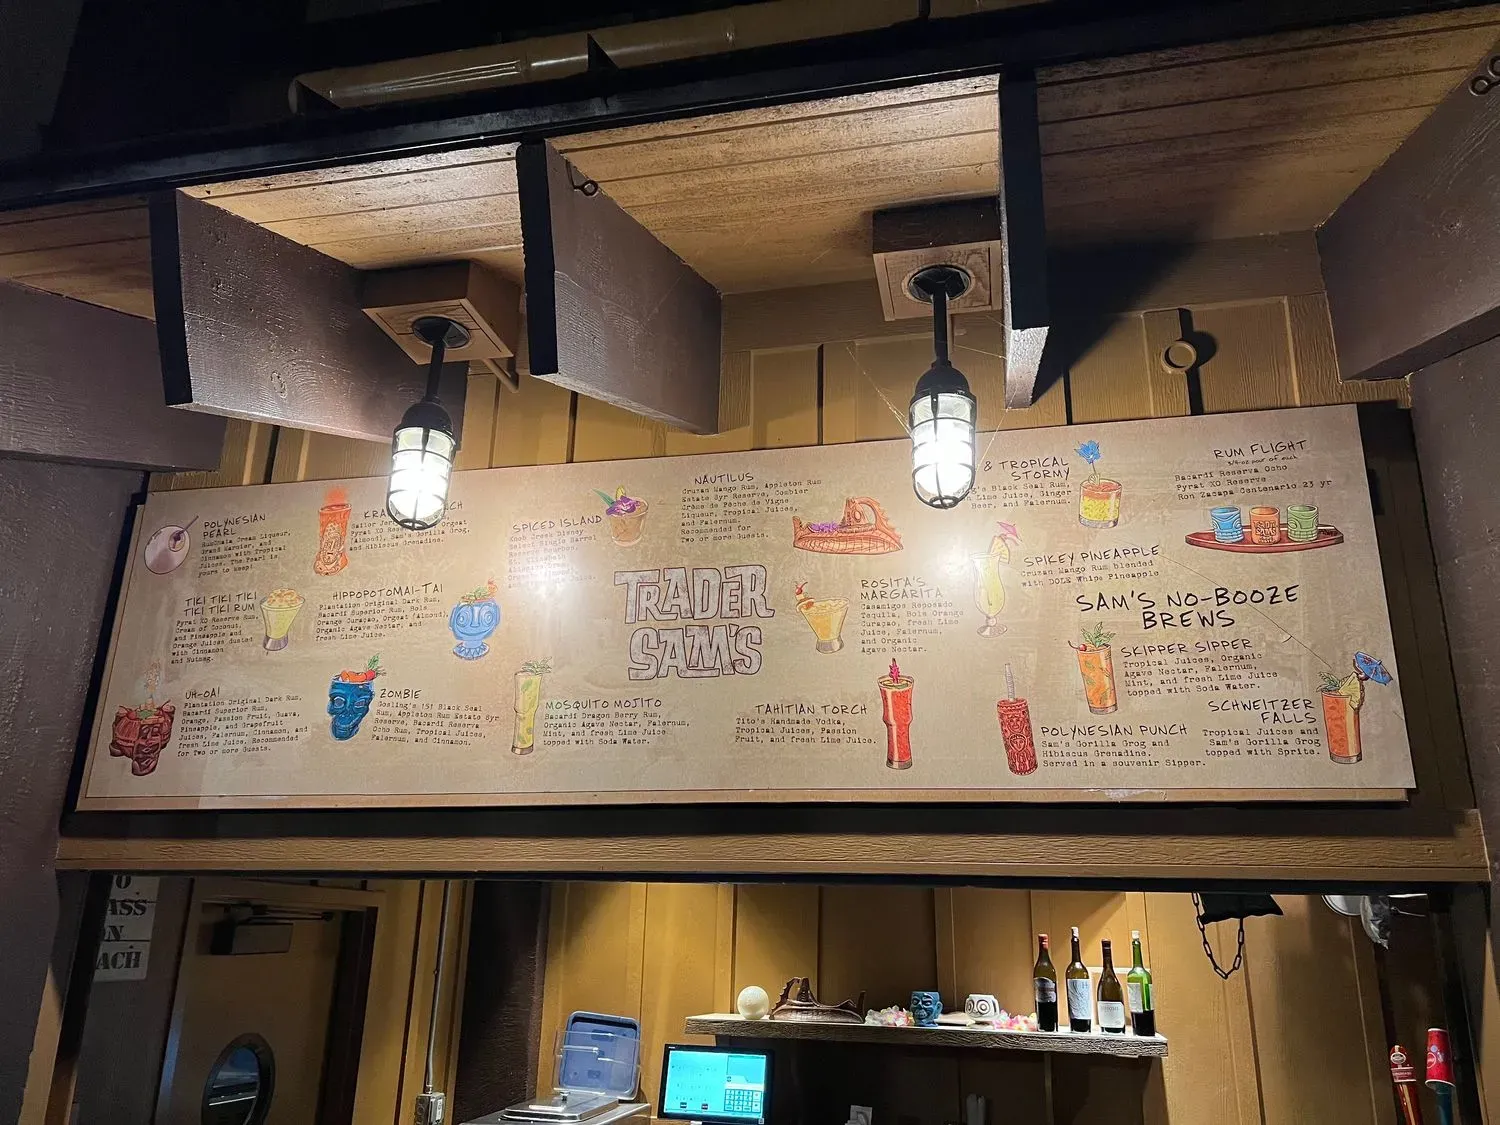 POLYNESIAN
PEARL
RumChata Cream Liqueur,
Grand Marnier, and
Cinnamon with Tropical
Juices. The Pearl is
yours to keep!
KRA
Sailor Jer
Pyrat XO Rese
(Almond), Sam's Gorilla Grog,
and Hibiscus Grenadine.
TIKI TIKI TIKI
TIKI TIKI RUM
Pyrat XO Reserve Rum,
Cream of Coconut,
and Pineapple and
Orange Juices dusted
with Cinnamon
and Nutmeg.
HIPPOPOTOMAI-TAI
Plantation Original Dark Rum,
Bacardi Superior Rum, Bols
Orange Curaçao, Orgeat (Almond),
Organic Agave Nectar, and
fresh Lime Juice.
UH-OA!
Plantation Original Dark Rum,
Bacardi Superior Rum,
Orange, Passion Fruit, Guava,
Pineapple, and Grapefruit
Juices, Falernum, Cinnamon, and
fresh Lime Juice. Recommended
for Two or more Guests.
ZOMBIE
Gosling's 151 Black Seal
Rum, Appleton Rum Estate 8yr
Reserve, Bacardi Reserva
Ocho Rum, Tropical Juices,
Falernum, and Cinnamon.
SPICED ISLAND
Knob Creek Disney
Select Single Barrel
Reserve Bourbon,
St. Elizabeth
Allspice Dram,
NAUTILUS
Cruzan Mango Rum, Appleton Rum
Estate 8yr Reserve, Combier
Crème de Pêche de Vigne
Liqueur, Tropical Juices,
and Falernum.
Recommended for
Two or more Guests.
TRADER
SAM'S
MOSQUITO MOJITO
Bacardi Dragon Berry Rum,
Organic Agave Nectar, Falernum,
Mint, and fresh Lime Juice
topped with Soda Water.
ROSITA'S
MARGARITA
Casamigos Reposado
Tequila, Bols Orange
Curaçao, fresh Lime
Juice, Falernum,
and Organic
Agave Nectar.
TAHITIAN TORCH
Tito's Handmade Vodka,
Tropical Juices, Passion
Fruit, and fresh Lime Juice.
& TROPICAL
STORMY
g's Black Seal Rum,
Lime Juice, Ginger
Beer, and Falernum.
RUM FLIGHT
3/4-oz pour of each
Bacardi Reserva Ocho
Pyrat XO Reserve
Ron Zacapa Centenario 23 yr
SPIKEY PINEAPPLE
Cruzan Mango Rum blended
with DOLE Whip® Pineapple
SAM'S NO-BOOZE
BREWS
SKIPPER SIPPER
Tropical Juices, Organic
Agave Nectar, Falernum,
Mint, and fresh Lime Juice
topped with Soda Water.
POLYNESIAN PUNCH
Sam's Gorilla Grog and
Hibiscus Grenadine.
Served in a souvenir Sipper.
SCHWEITZER
FALLS
Tropical Juices and
Sam's Gorilla Grog
topped with Sprite.
ASS
ACH